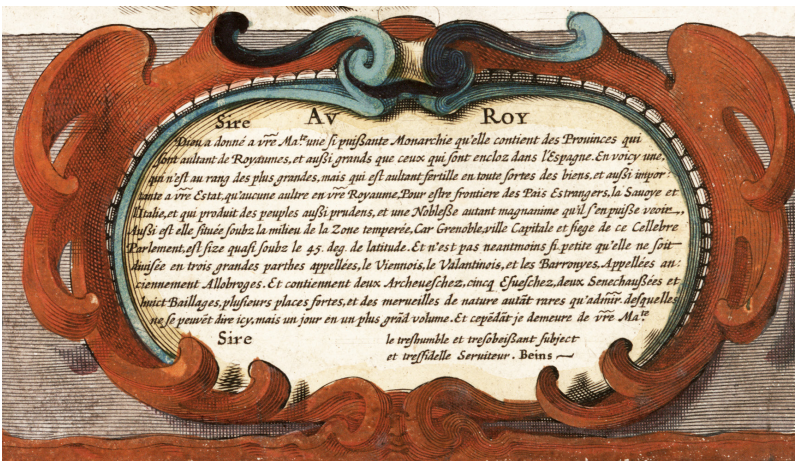 AV ROY
Sire
Dieu a donné a vr̃e Ma.te une si puißante Monarchie qu'elle contient des Prouinces qui
sont aultant de Royaumes, et außi grands que ceux qui sont encloz dans l'Espagne. En voicy une,
qui n'est au rang des plus grandes, mais qui est aultant fertille en toute sortes des biens, et außi impor-
tante a vr̃e Estat, qu'aucune aultre en vr̃e Royaume, Pour estre frontiere des Pais Estrangers, la Sauoye et
l'Italie, et qui produit des peuples außi prudens, et une Nobleße autant magnanime qu'il s'en puiße veoir,
Außi est elle située soubz la milieu de la Zone temperée, Car Grenoble, ville Capitale et siege de ce Cellebre
Parlement, est size quasi soubz le 45. deg. de latitude. Et n'est pas neantmoins si petite qu'elle ne soit
diuisée en trois grandes parthes appellées, le Viennois, le Valantinois, et les Barronyes. Appellées an:
ciennement Allobroges. Et contiennent deux Archeueschez, cincq Esueschez, deux Senechaußées et
huict Baillages, plusieurs places fortes, et des merueilles de nature autãt rares qu'admir. desquelles
ne se peuvẽt dire icy, mais un jour en un plus grãd volume. Et cepẽdãt je demeure de vr̃e Ma.te
Sire
le treshumble et tresobeißant subject
et tresfidelle Seruiteur. Beins